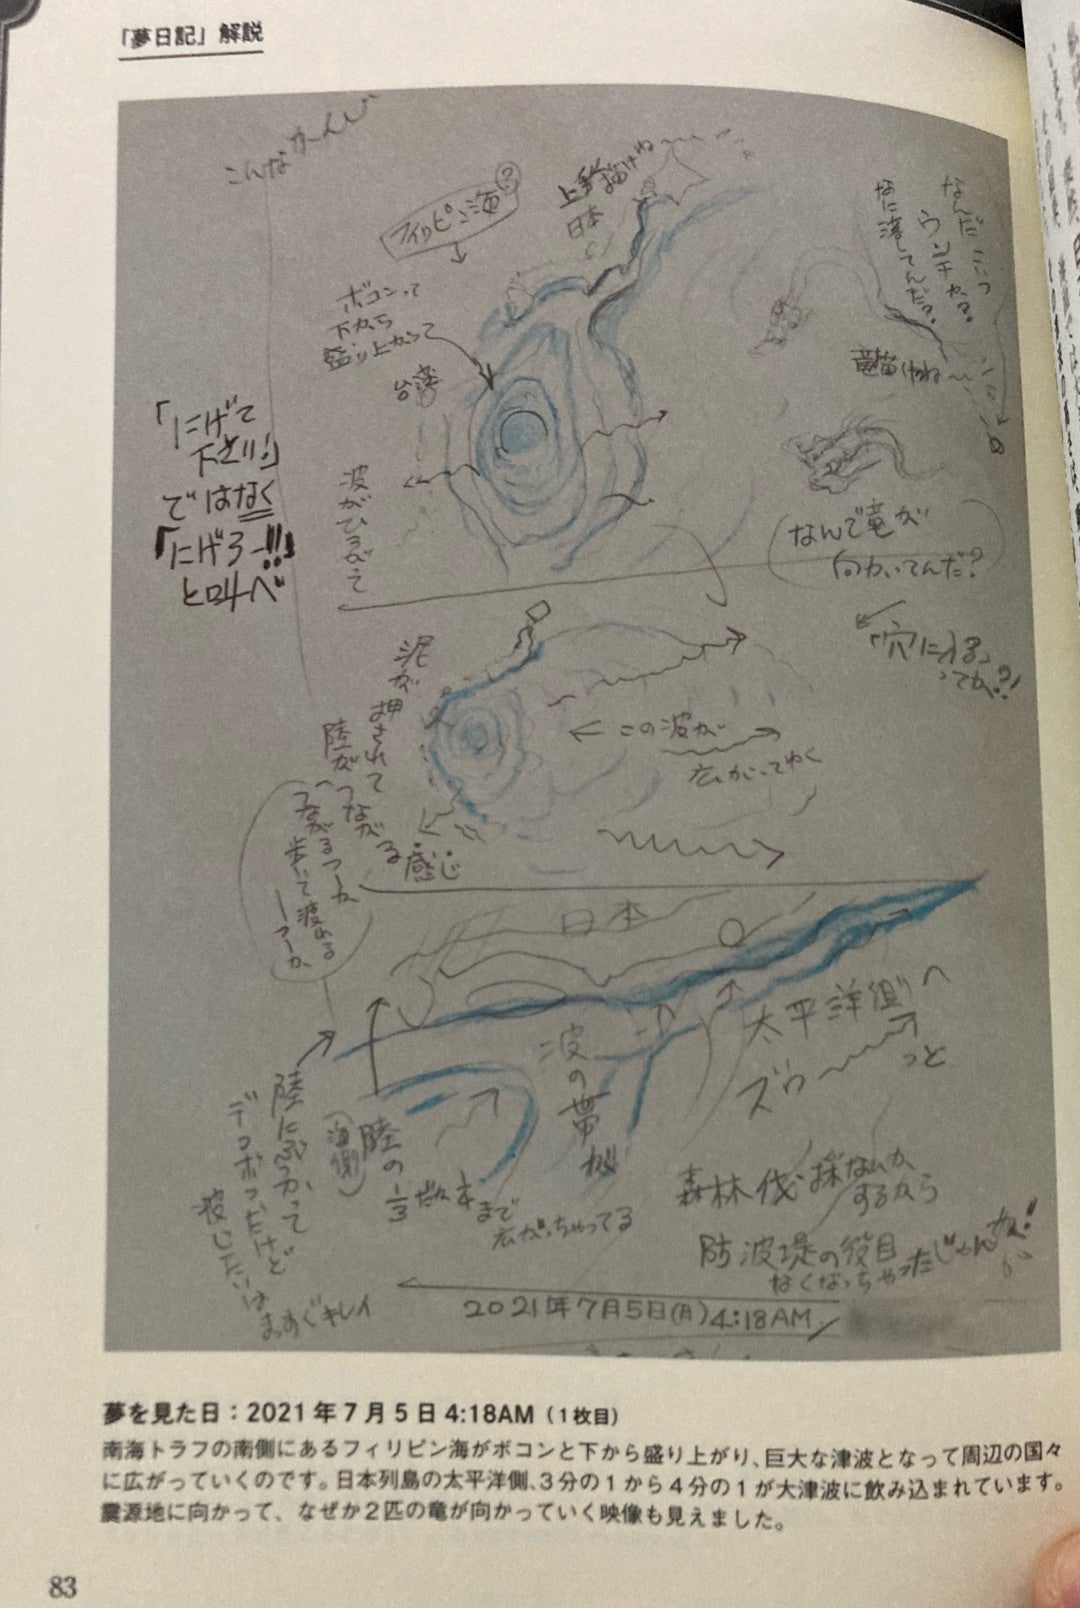 「夢日記」解説
こんなかんじ
フィリピン海?
上手く描けね〜
日本
ボコンって
下から
盛り上がって
台湾
波がひろがって
「にげて
下さい!」
ではなく
「にげろー!!」
と叫べ
竜描けね〜
なんで竜が
向かいてんだ?
「穴に入る」
ってか?!
泥が押されて
陸がつながる感じ
つながるつーか
歩いて渡れる
この波が
広がってゆく
日本
太平洋側へ
ズゥ〜っと
波の帯が
陸の1/3
(海側)
まで
広がっちゃってる
陸にぶつかって
デコボコだけど
波じたいは
まっすぐキレイ
森林伐採なんか
するから
防波堤の役目
なくなっちゃったじゃんか!
2021年7月5日(月)4:18AM
夢を見た日:2021年7月5日4:18AM(1枚目)
南海トラフの南側にあるフィリピン海がボコンと下から盛り上がり、巨大な津波となって周辺の国々
に広がっていくのです。日本列島の太平洋側、3分の1から4分の1が大津波に飲み込まれています。
震源地に向かって、なぜか2匹の竜が向かっていく映像も見えました。
83